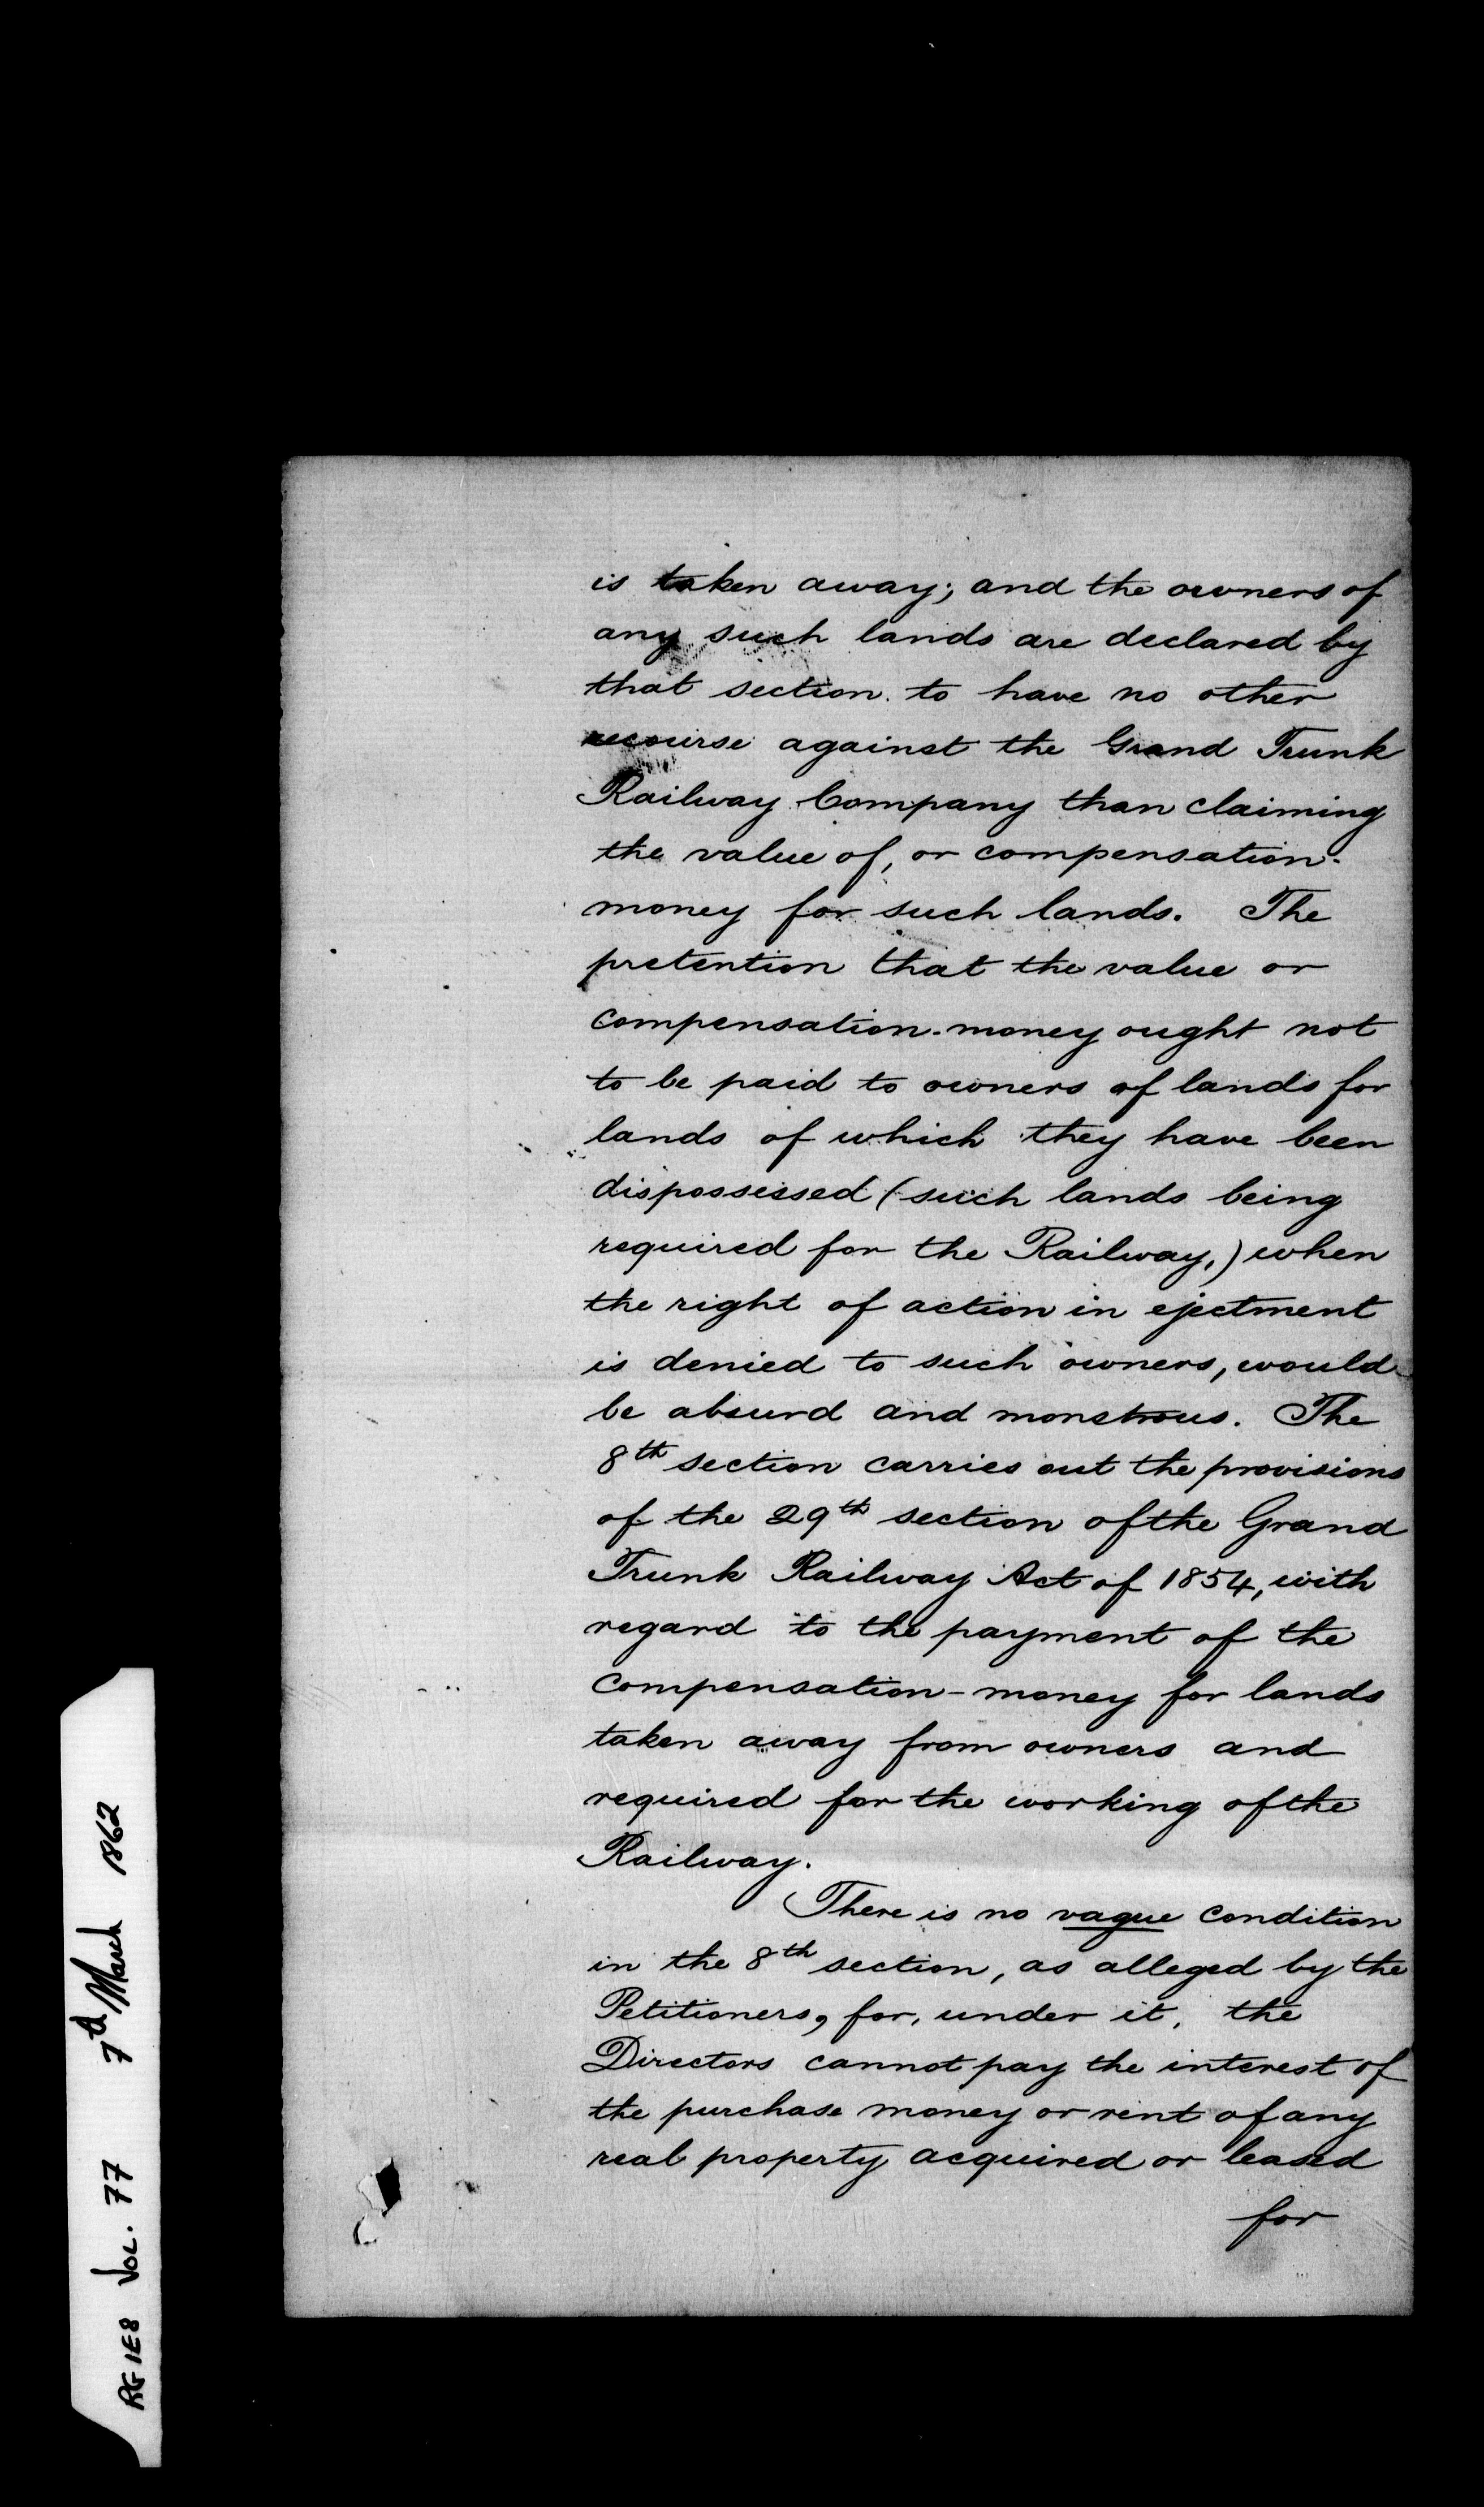 is taken away; and the owners of
any such lands are declared by
that section. to have no other
recourse against the Grand Trunk
Railway Company than claiming
the value of, or compensation-
money for such lands. The
pretention that the value or
compensation-money ought not
to be paid to owners of lands for
lands of which they have been
dispossessed (such lands being
required for the Railway,) when
the right of action in ejectment
is denied to such owners, would
be absurd and monstrous. The
8th section carries out the provisions
of the 29th section of the Grand
Trunk Railway Act of 1854, with
regard to the payment of the
compensation-money for lands
taken away from owners and
required for the working of the
Railway.
There is no vague condition
in the 8th section, as alleged by the
Petitioners, for, under it, the
Directors cannot pay the interest of
the purchase money or rent of any
real property acquired or leased
for
RG 1E8 VOL. 77 7th March 1862